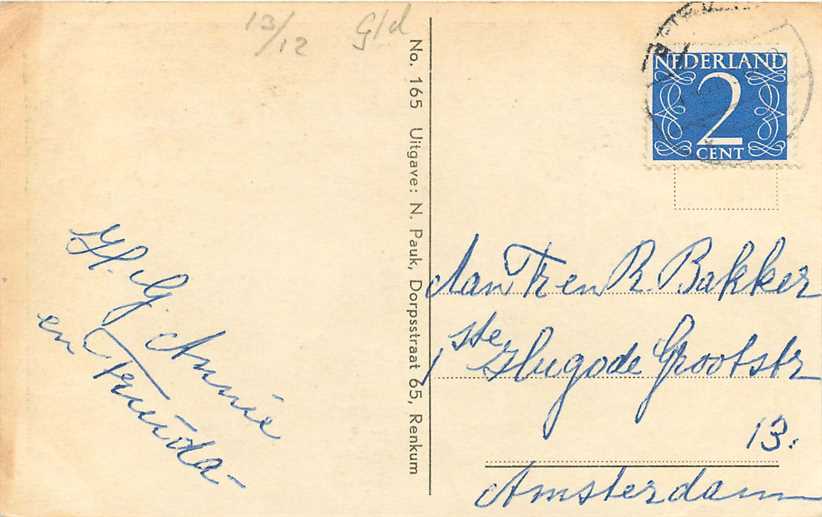 13/12 G/d
H. G. Annie
en Truida-
No. 165 Uitgave: N. Pauk, Dorpsstraat 65, Renkum
NEDERLAND
2
CENT
Aan Tr en R. Bakker
1ste Hugo de Grootstr
13.
Amsterdam